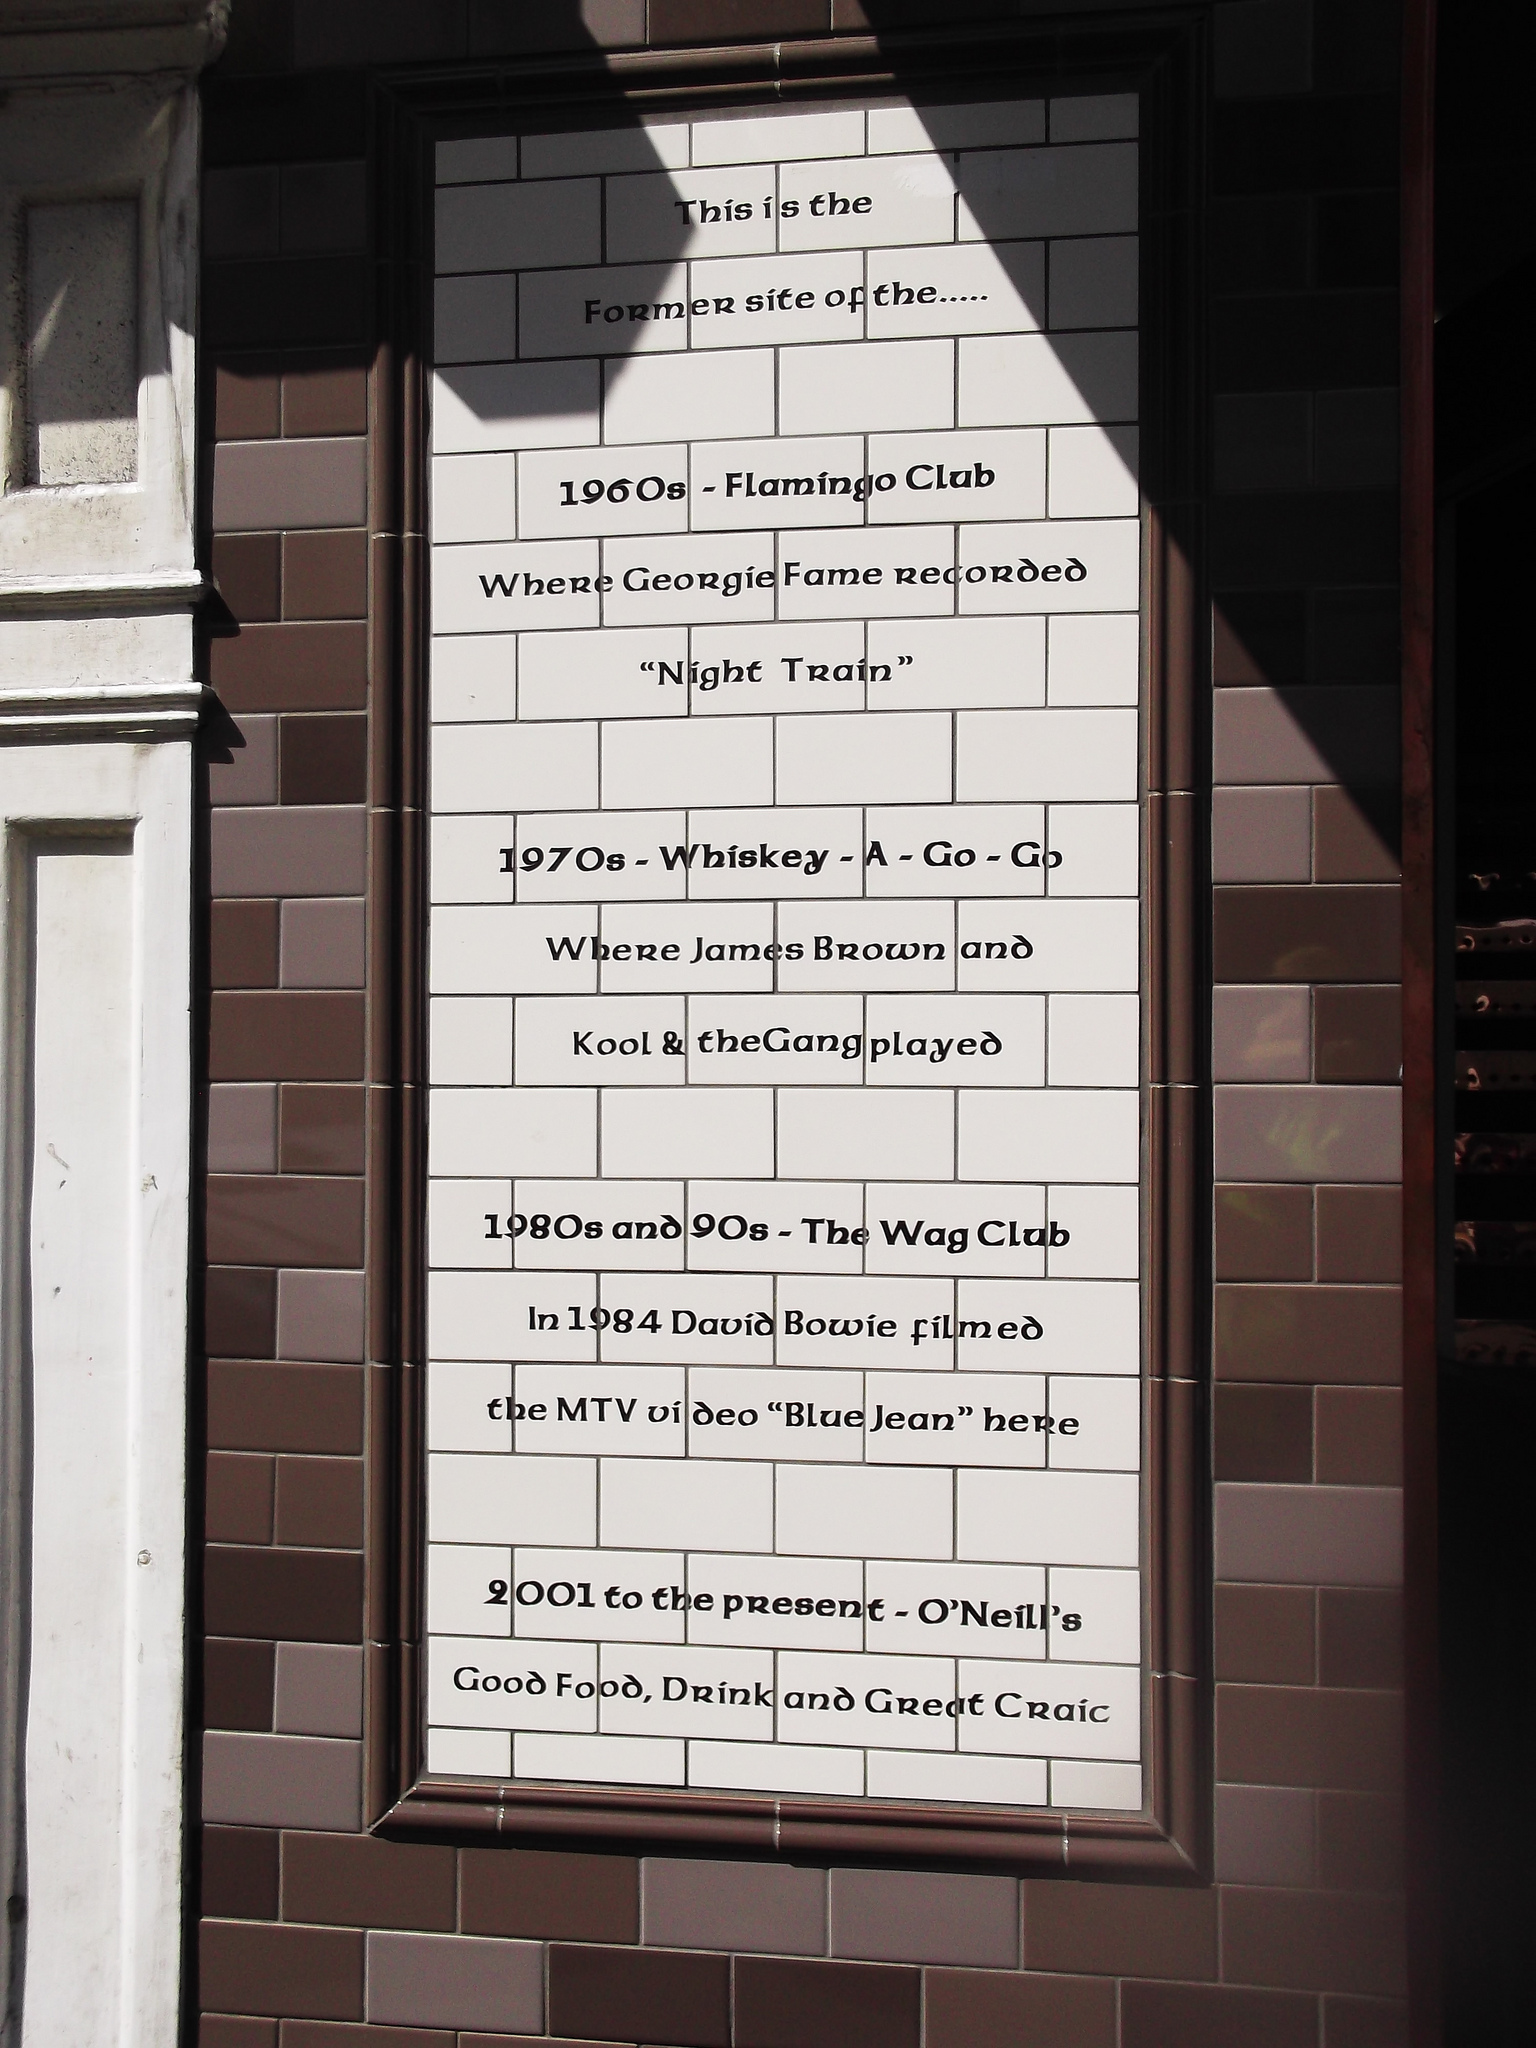 This is the
Former site of the.....
1960s - Flamingo Club
Where Georgie Fame recorded
“Night Train”
1970s - Whiskey - A - Go - Go
Where James Brown and
Kool & the Gang played
1980s and 90s - The Wag Club
In 1984 David Bowie filmed
the MTV video “Blue Jean” here
2001 to the present - O’Neill’s
Good Food, Drink and Great Craic